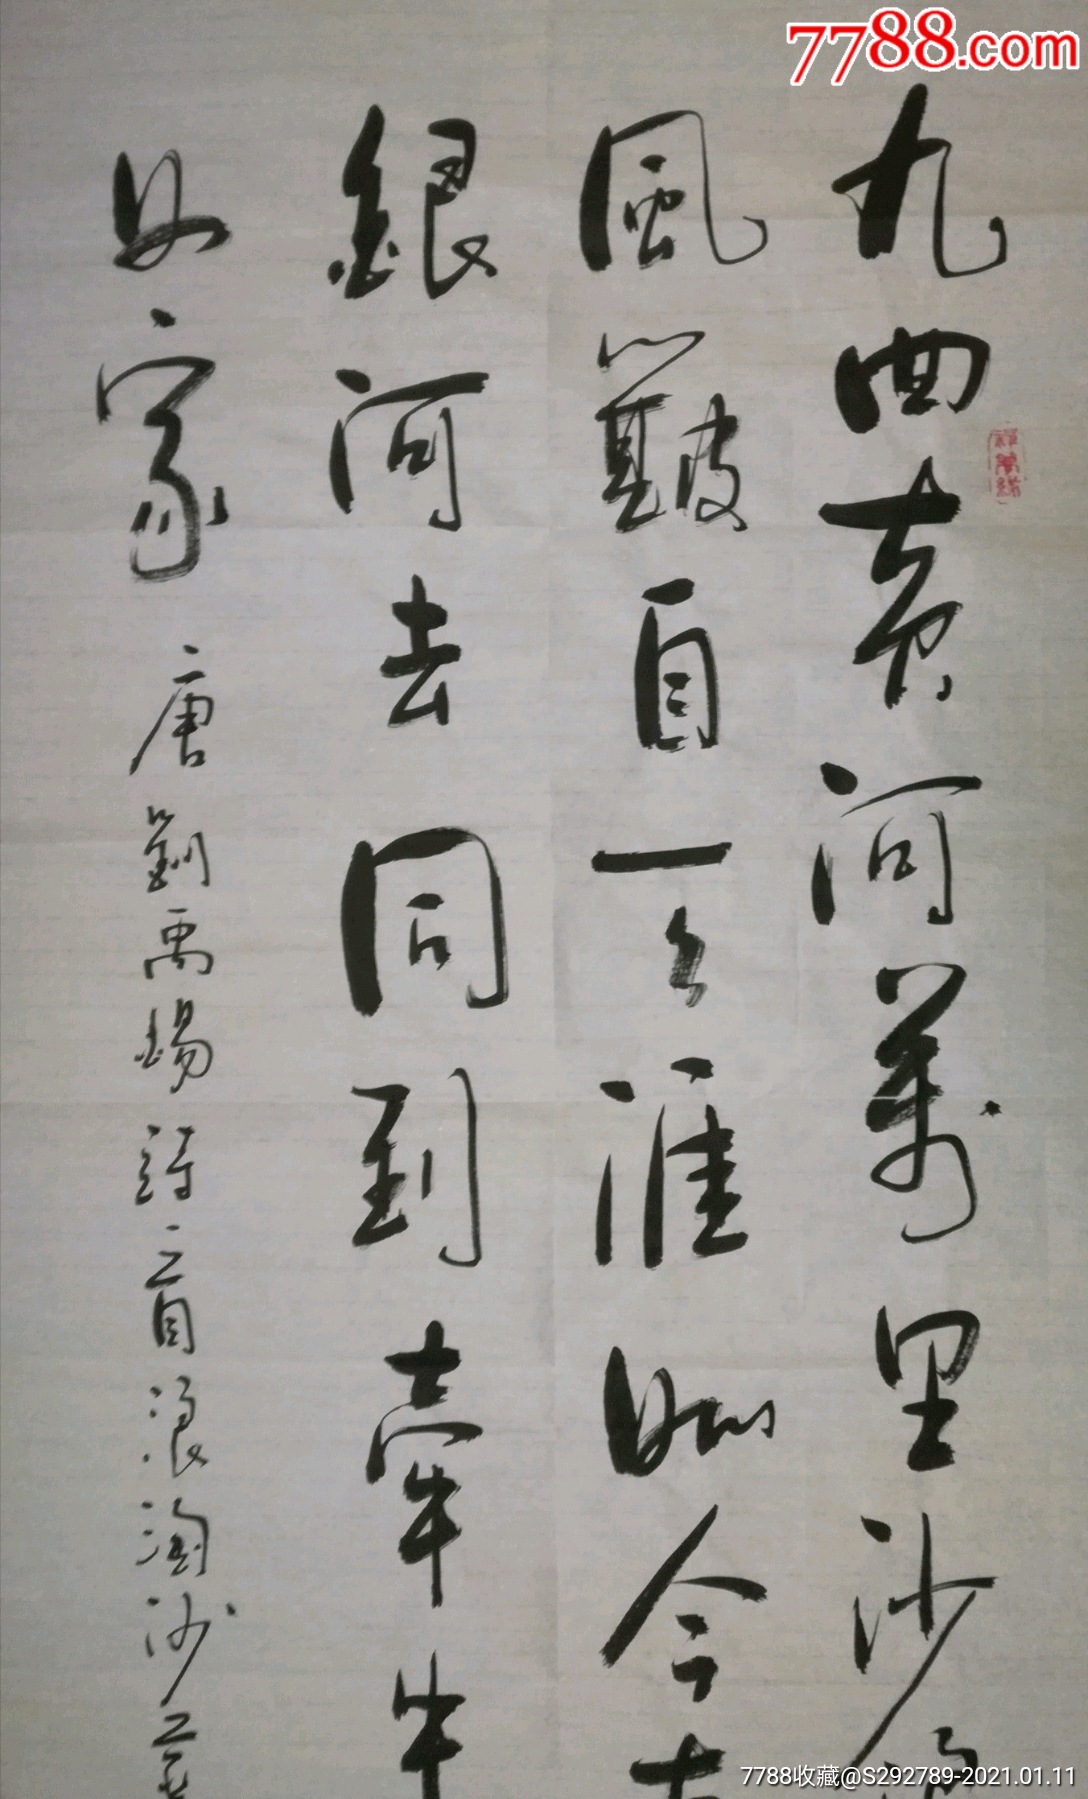 7788.com
九曲黄河萬里沙
風簸自天涯如今
銀河去同到牽牛
女家
唐劉禹錫詩一首浪淘沙
7788收藏@S292789-2021.01.11